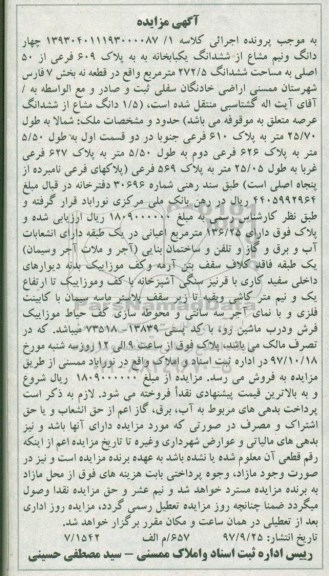 آگهی مزایده
به موجب پرونده اجرائی کلاسه ۱/ ۱۳۹۳۰۴۰۱۱۱۹۳۰۰۰۰۸۷ چهار
دانگ ونیم مشاع از ششدانگ یکبابخانه به به پلاک ۶۰۹ فرعی از ۵۰
اصلی به مساحت ششدانگ ۲۷۲/۵ مترمربع واقع در قطعه نه بخش ۷ فارس
شهرستان ممسنی اراضی خادنگان سفلی ثبت و صادر و مع الواسطه به /
آقای آیت اله گشتاسبی منتقل شده است، (۱/۵ دانگ مشاع از ششدانگ
عرصه متعلق به موقوفه می باشد) حدود و مشخصات ملک: شمالا به طول
۲۵/۷۰ متر به پلاک ۶۱۰ فرعی جنوبا در دو قسمت اول به طول ۵/۵۰
متر به پلاک ۶۲۶ فرعی دوم به طول ۵/۵۰ متر به پلاک ۶۲۷ فرعی
غربا به طول ۲۵/۰۵ متر به پلاک ۵۶۹ فرعی (پلاکهای فرعی نامبرده از
پنجاه اصلی است) طبق سند رهنی شماره ۳۰۶۹۶ دفترخانه در قبال مبلغ
۴۴۰۵۹۹۲۹۶۴ ریال در رهن بانک ملی مرکزی نوراباد قرار گرفته و
طبق نظر کارشناس رسمی به مبلغ ۱۸۰۹۰۰۰۰۰۰ ریال ارزیابی شده و
پلاک فوق دارای ۱۳۶/۲۵ مترمربع اعیانی در یک طبقه دارای انشعابات
آب و برق و گاز و تلفن و ساختمان بنایی (آجر و ملات آجر وسیمان)
یک طبقه فاقد کلاف سقف بتن آرمه وکف موزاییک بدنه دیوارهای
داخلی سفید کاری با قرنیز سنگی آشپزخانه با کف وموزاییک تا ارتفاع
یک و نیم متر کاشی وبقیه تا زیر سقف پلاستر ماسه سیمان با کابینت
فلزی و با نمای آجر سه سانتی و محوطه سازی کف حیاط موزاییک
فرش ودرب ماشین رو، با کد پستی ۱۳۸۳۹-۷۳۵۱۸ میباشد. که در
تصرف مالک می باشد، پلاک فوق از ساعت ۹ الی ۱۲ روزسه شنبه مورخ
۹۷/۱۰/۱۸ در اداره ثبت اسناد و املاک واقع در نوراباد ممسنی از طریق
مزایده به فروش می رسد. مزایده از مبلغ ۱۸۰۹۰۰۰۰۰۰ ریال شروع
و به بالاترین قیمت پیشنهادی نقدأ فروخته می شود. لازم به ذکر است
پرداخت بدهی های مربوط به آب، برق، گاز اعم از حق انشعاب و یا حق
اشتراک و مصرف در صورتی که مورد مزایده دارای آنها باشد و نیز
بدهی های مالیاتی و عوارض شهرداری وغیره تا تاریخ مزایده اعم از اینکه
رقم قطعی آن معلوم شده یا نشده باشد به عهده برنده مزایده است و نیز در
صورت وجود مازاد، وجوه پرداختی بابت هزینه های فوق از محل مازاد
به برنده مزایده مسترد خواهد شد و نیم عشر و حق مزایده نقدا وصول
میگردد ضمنا چنانچه روز مزایده تعطیل رسمی گردد، مزایده روز اداری
بعد از تعطیلی در همان ساعت و مکان مقرر برگزار خواهد شد.
تاریخ انتشار: ۹۷/۹/۲۵ ۶۵۷/م الف ۷/۱۵۴۲
رییس اداره ثبت اسناد واملاک ممسنی – سید مصطفی حسینی